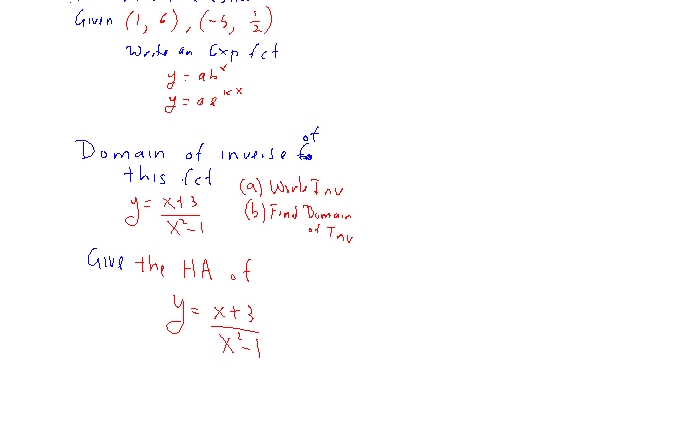 Given (1, 6), (-5, 1/2)
Write an Exp fct
y = ab^x
y = ae^kx
Domain of inverse of
this fct
y = x+3 / x²-1
(a) Write Inv
(b) Find Domain
of Inv
Give the HA of
y = x+3 / x²-1